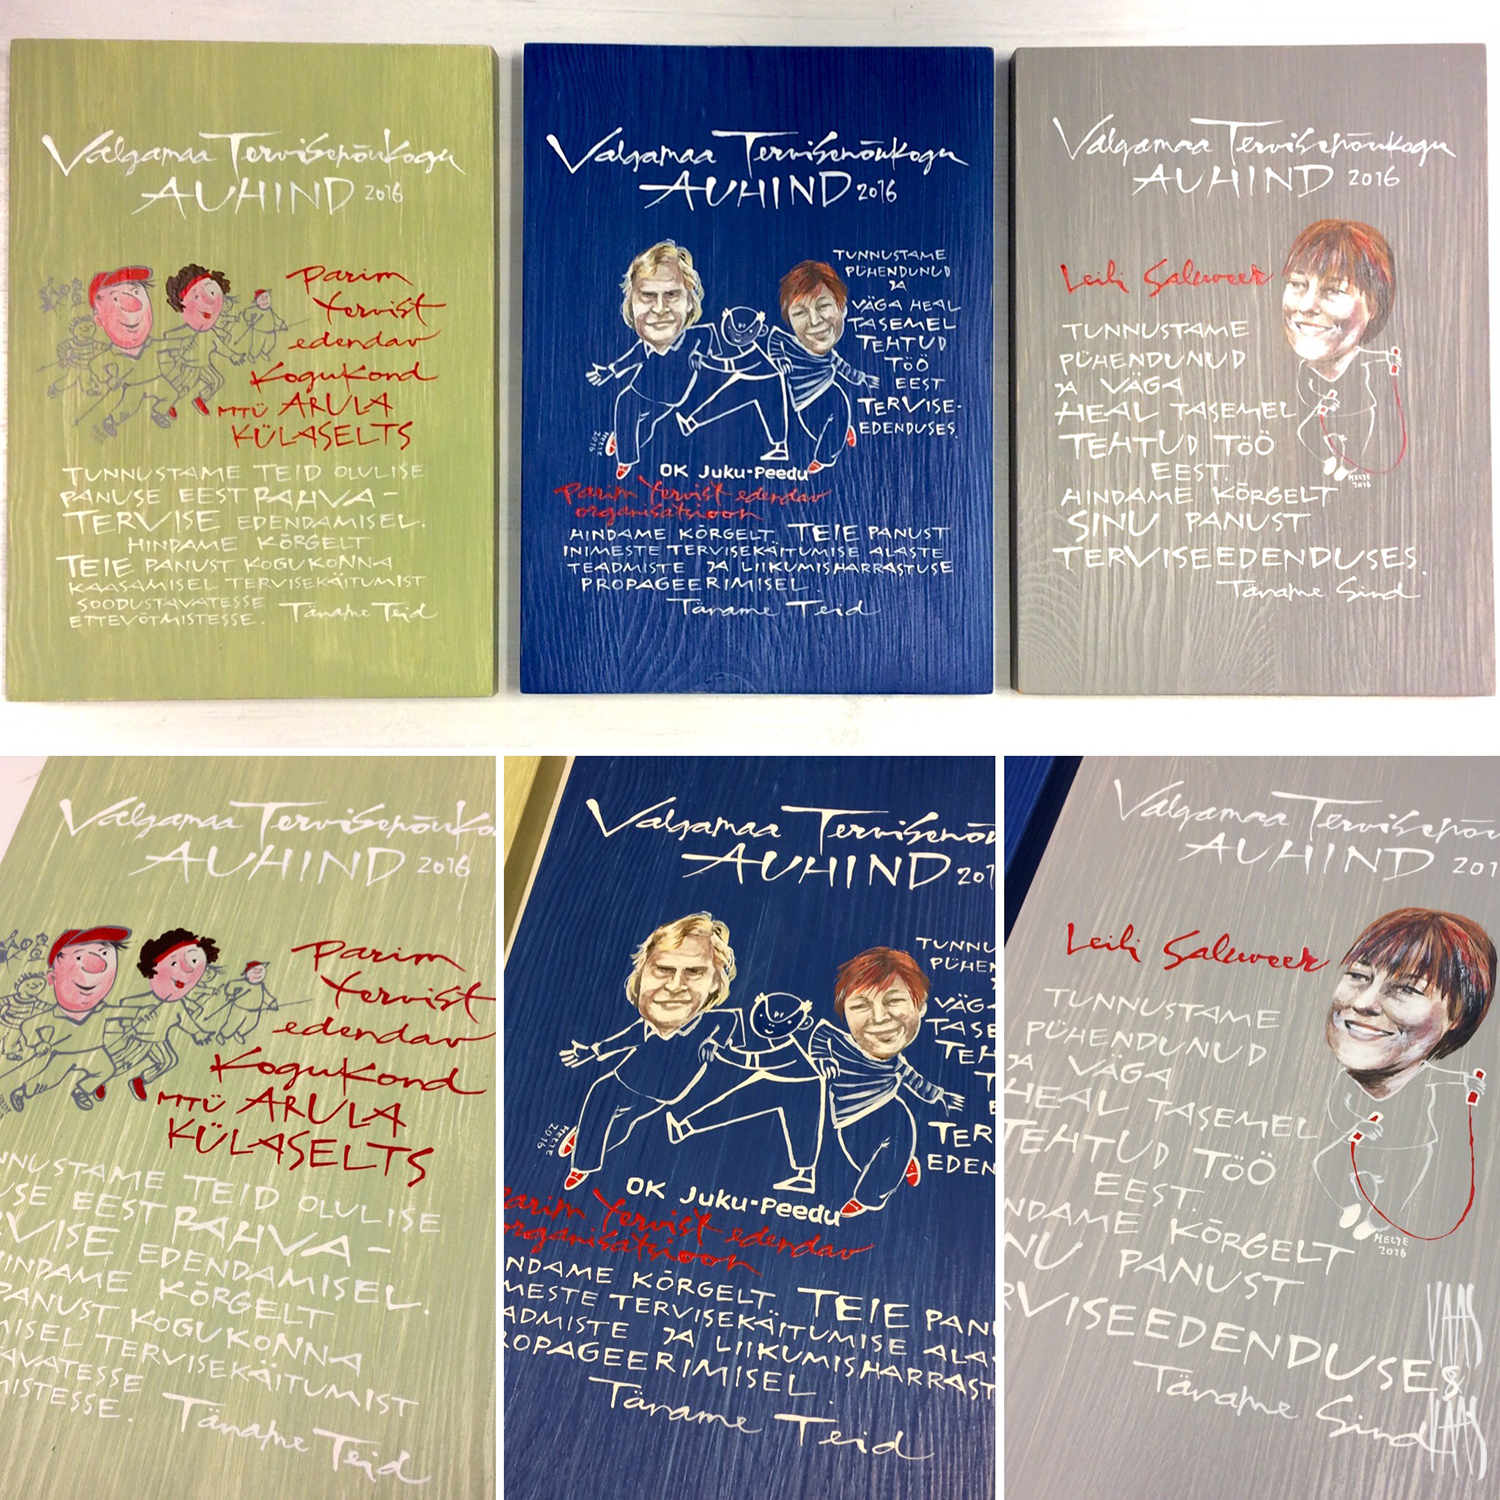 Valgamaa Tervisenõukogu
AUHIND 2016
Parim
Tervist
edendav
Kogukond
MTÜ ARULA
KÜLASELTS
TUNNUSTAME TEID OLULISE
PANUSE EEST RAHVA-
TERVISE EDENDAMISEL.
HINDAME KÕRGELT
TEIE PANUST KOGUKONNA
KAASAMISEL TERVISEKÄITUMIST
SOODUSTAVATESSE
ETTEVÕTMISTESSE. Täname Teid
Valgamaa Tervisenõukogu
AUHIND 2016
TUNNUSTAME
PÜHENDUNUD
JA
VÄGA HEAL
TASEMEL
TEHTUD
TÖÖ
EEST
TERVISE-
EDENDUSES.
HELJE
2016
OK Juku-Peedu
Parim Tervist edendav
organisatsioon
HINDAME KÕRGELT TEIE PANUST
INIMESTE TERVISEKÄITUMISE ALASTE
TEADMISTE JA LIIKUMISHARRASTUSE
PROPAGEERIMISEL.
Täname Teid
Valgamaa Tervisenõukogu
AUHIND 2016
Leili Saluveer
TUNNUSTAME
PÜHENDUNUD
JA VÄGA
HEAL TASEMEL
TEHTUD TÖÖ
EEST.
HINDAME KÕRGELT
SINU PANUST
TERVISEEDENDUSES.
Täname Sind
HELJE
2016
Valgamaa Tervisenõuko
AUHIND 2016
Parim
Tervist
edendav
Kogukond
MTÜ ARULA
KÜLASELTS
NNUSTAME TEID OLULISE
USE EEST RAHVA-
RVISE EDENDAMISEL.
INDAME KÕRGELT
PANUST KOGUKONNA
MISEL TERVISEKÄITUMIST
AVATESSE
MISTESSE. Täname Teid
Valgamaa Tervisenõu
AUHIND 201
TUNNU
PÜHEN
VÄGA
TASE
TEH
T
E
TER
EDEN
HELJE
2016
OK Juku-Peedu
Parim Tervist edendav
organisatsioon
NDAME KÕRGELT TEIE PAN
MESTE TERVISEKÄITUMISE ALAS
ADMISTE JA LIIKUMISHARRAST
ROPAGEERIMISEL.
Täname Teid
Valgamaa Tervisenõu
AUHIND 201
Leili Saluveer
TUNNUSTAME
PÜHENDUNUD
JA VÄGA
HEAL TASEMEL
TEHTUD TÖÖ
EEST.
NDAME KÕRGELT
NU PANUST
RVISEEDENDUSES
Täname Sind
HELJE
2016
VAAS
&
VAAS